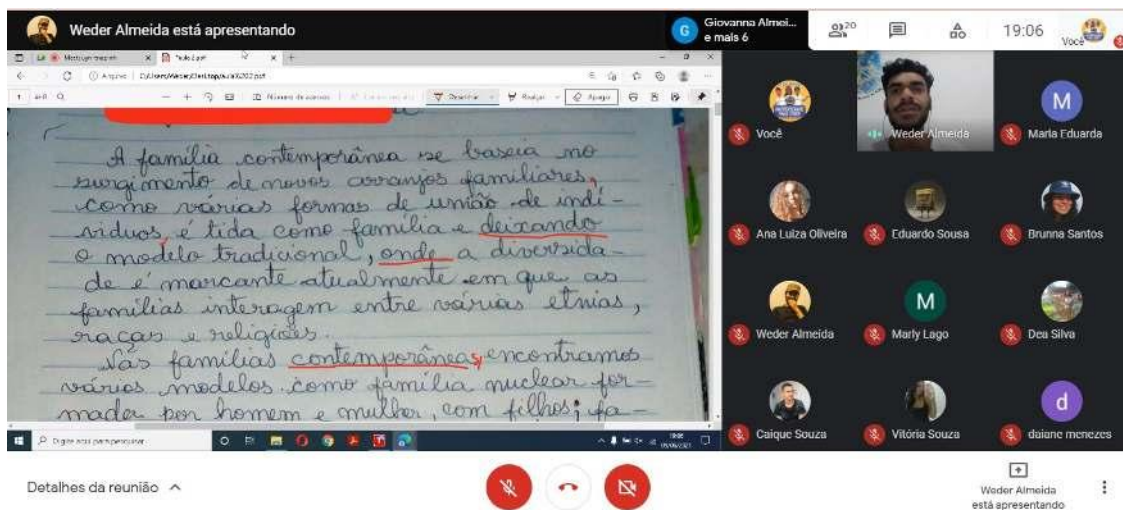 Weder Almeida está apresentando
G
Giovanna Almei...
e mais 6
20
19:06
Você
Arquivo
A família contemporânea se baseia no
surgimento de novos arranjos familiares,
como várias formas de união de indí-
viduos, é tida como família e deixando
o modelo tradicional, onde a diversida-
de é marcante atualmente em que as
famílias interagem entre várias etnias,
raças e religiões.
Nas famílias contemporâneas, encontramos
vários modelos como família nuclear for-
mada por homem e mulher, com filhos; fa-
Você
Weder Almeida
M
Maria Eduarda
Ana Luiza Oliveira
Eduardo Sousa
Brunna Santos
Weder Almeida
M
Marly Lago
Dea Silva
Caique Souza
Vitória Souza
d
daiane menezes
Digite aqui para pesquisar
Detalhes da reunião
Weder Almeida
está apresentando